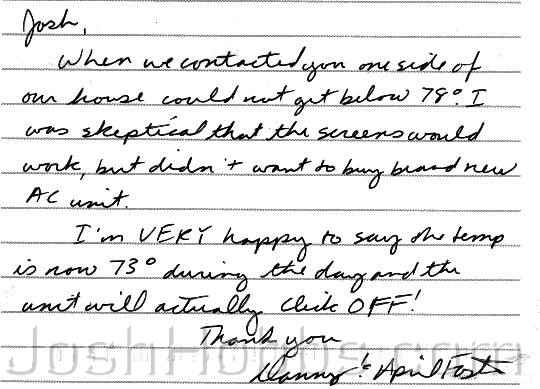 Josh,
When we contacted you one side of
our house could not get below 78°. I
was skeptical that the screens would
work, but didn't want to buy brand new
AC unit.
I'm VERY happy to say the temp
is now 73° during the day and the
unit will actually click OFF!
Thank you
Danny & April Foster